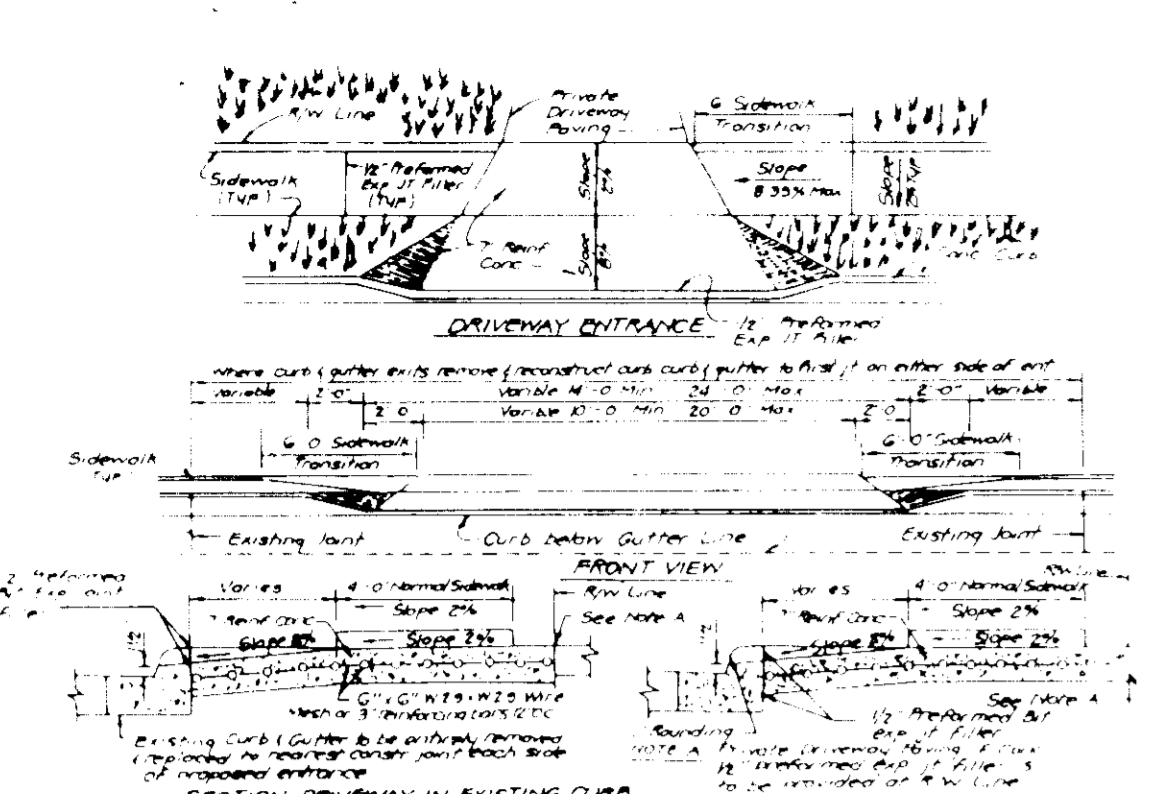 R/W Line
Private
Driveway
Paving
6' Sidewalk
Transition
Sidewalk
(Typ)
1/2" Preformed
Exp JT Filler
(Typ)
Slope
2%
Slope
8.33% Max
Slope
Typ
7" Reinf
Conc
Slope
8%
Conc Curb
DRIVEWAY ENTRANCE
1/2" Preformed
Exp JT Filler
Where curb & gutter exits remove & reconstruct curb curb & gutter to first jt on either side of ent
Variable 2'-0" Varible 14'-0 Min 24'-0" Max 2'-0" Variable
2'-0 Varible 10'-0 Min 20'-0" Max 2'-0
6'-0 Sidewalk
Transition
6'-0" Sidewalk
Transition
Sidewalk
Typ
Existing Joint
Curb below Gutter Line
Existing Joint
FRONT VIEW
Preformed
Varies 4'-0" Normal Sidewalk
Slope 2%
7" Reinf Conc
Slope 8% Slope 2%
R/W Line
See Note A
6" x 6" W2.9 x W2.9 Wire
Mesh or 3" reinforcing bars 12"OC
Existing Curb & Gutter to be entirely removed
& replaced to nearest constr joint each side
of proposed entrance
SECTION DRIVEWAY IN EXISTING CURB
R/W Line
Varies 4'-0" Normal Sidewalk
Slope 2%
Reinf Conc
Slope 8% Slope 2%
See Note A
1/2" Preformed Bit
exp jt filler
Rounding
NOTE A Private Driveway Paving
1/2" preformed exp jt filler
to be provided at R/W Line